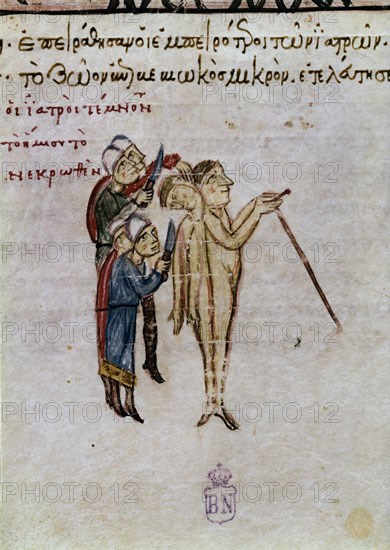 ἐπειράθησαν οἱ ἐμπειρότ οι τῶν ἰατρῶν.
τὸ ζῶον μικρὸν. ἐτελεύτησε
οἱ ἰατροὶ τέμνον
τὸ ἥμισυ τὸ
νεκρωθὲν
BN
PHOTO 12